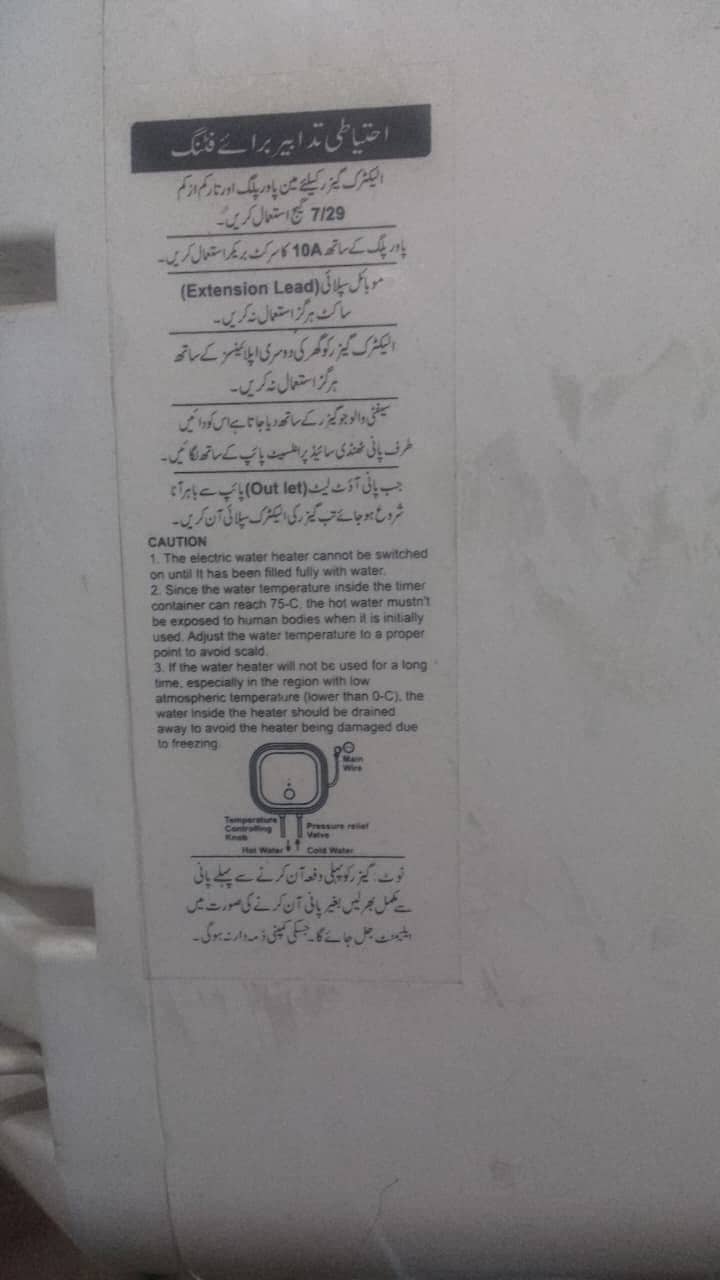 احتیاطی تدابیر برائے فٹنگ
الیکٹرک گیزر کیلئے مین پاور پلگ اور تار کم از کم
7/29 گیج استعمال کریں۔
پاور پلگ کے ساتھ 10A کا سرکٹ بریکر استعمال کریں۔
موبائل سپلائی (Extension Lead)
ساکٹ ہرگز استعمال نہ کریں۔
الیکٹرک گیزر کو گھر کی دوسری اپلائینسز کے ساتھ
ہرگز استعمال نہ کریں۔
سیفٹی والو جو گیزر کے ساتھ دیا جاتا ہے اس کو دائیں
طرف پانی ٹھنڈی سائیڈ پر اٹلیٹ پائپ کے ساتھ لگائیں۔
جب پانی آؤٹ لیٹ (Out let) پائپ سے باہر آنا
شروع ہو جائے تب گیزر کی الیکٹرک سپلائی آن کریں۔
CAUTION
1. The electric water heater cannot be switched
on until It has been filled fully with water.
2. Since the water temperature inside the timer
container can reach 75-C, the hot water mustn't
be exposed to human bodies when it is initially
used. Adjust the water temperature to a proper
point to avoid scald.
3. If the water heater will not be used for a long
time, especially in the region with low
atmospheric temperature (lower than 0-C), the
water Inside the heater should be drained
away to avoid the heater being damaged due
to freezing.
Main
Wire
Temperature
Controlling
Knob
Pressure relief
Valve
Hot Water
Cold Water
نوٹ: گیزر کو پہلی دفعہ آن کرنے سے پہلے پانی
سے مکمل بھر لیں بغیر پانی آن کرنے کی صورت میں
ایلیمنٹ جل جائے گا۔ جسکی کمپنی ذمہ دار نہ ہوگی۔